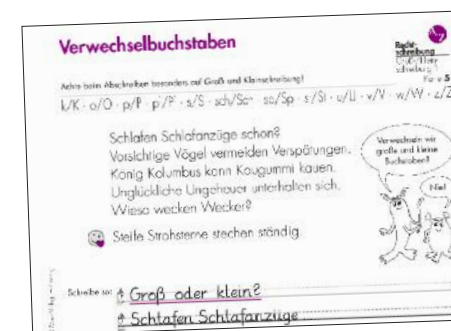 Verwechselbuchstaben
Recht-
schreibung
Achte beim Abschreiben besonders auf Groß und Kleinschreibung!
k/K · o/O · p/P · pf/Pf · s/S · sch/Sch · sp/Sp · st/St · u/U · v/V · w/W · z/Z
Schlafen Schlafanzüge schon?
Vorsichtige Vögel vermeiden Verspätungen.
König Kolumbus kann Kaugummi kauen.
Unglückliche Ungeheuer unterhalten sich.
Wieso wecken Wecker?
Steile Strohsterne stechen ständig.
Verwechseln wir
große und kleine
Buchstaben?
Nie!
Schreibe so:
Groß oder klein?
Schlafen Schlafanzüge